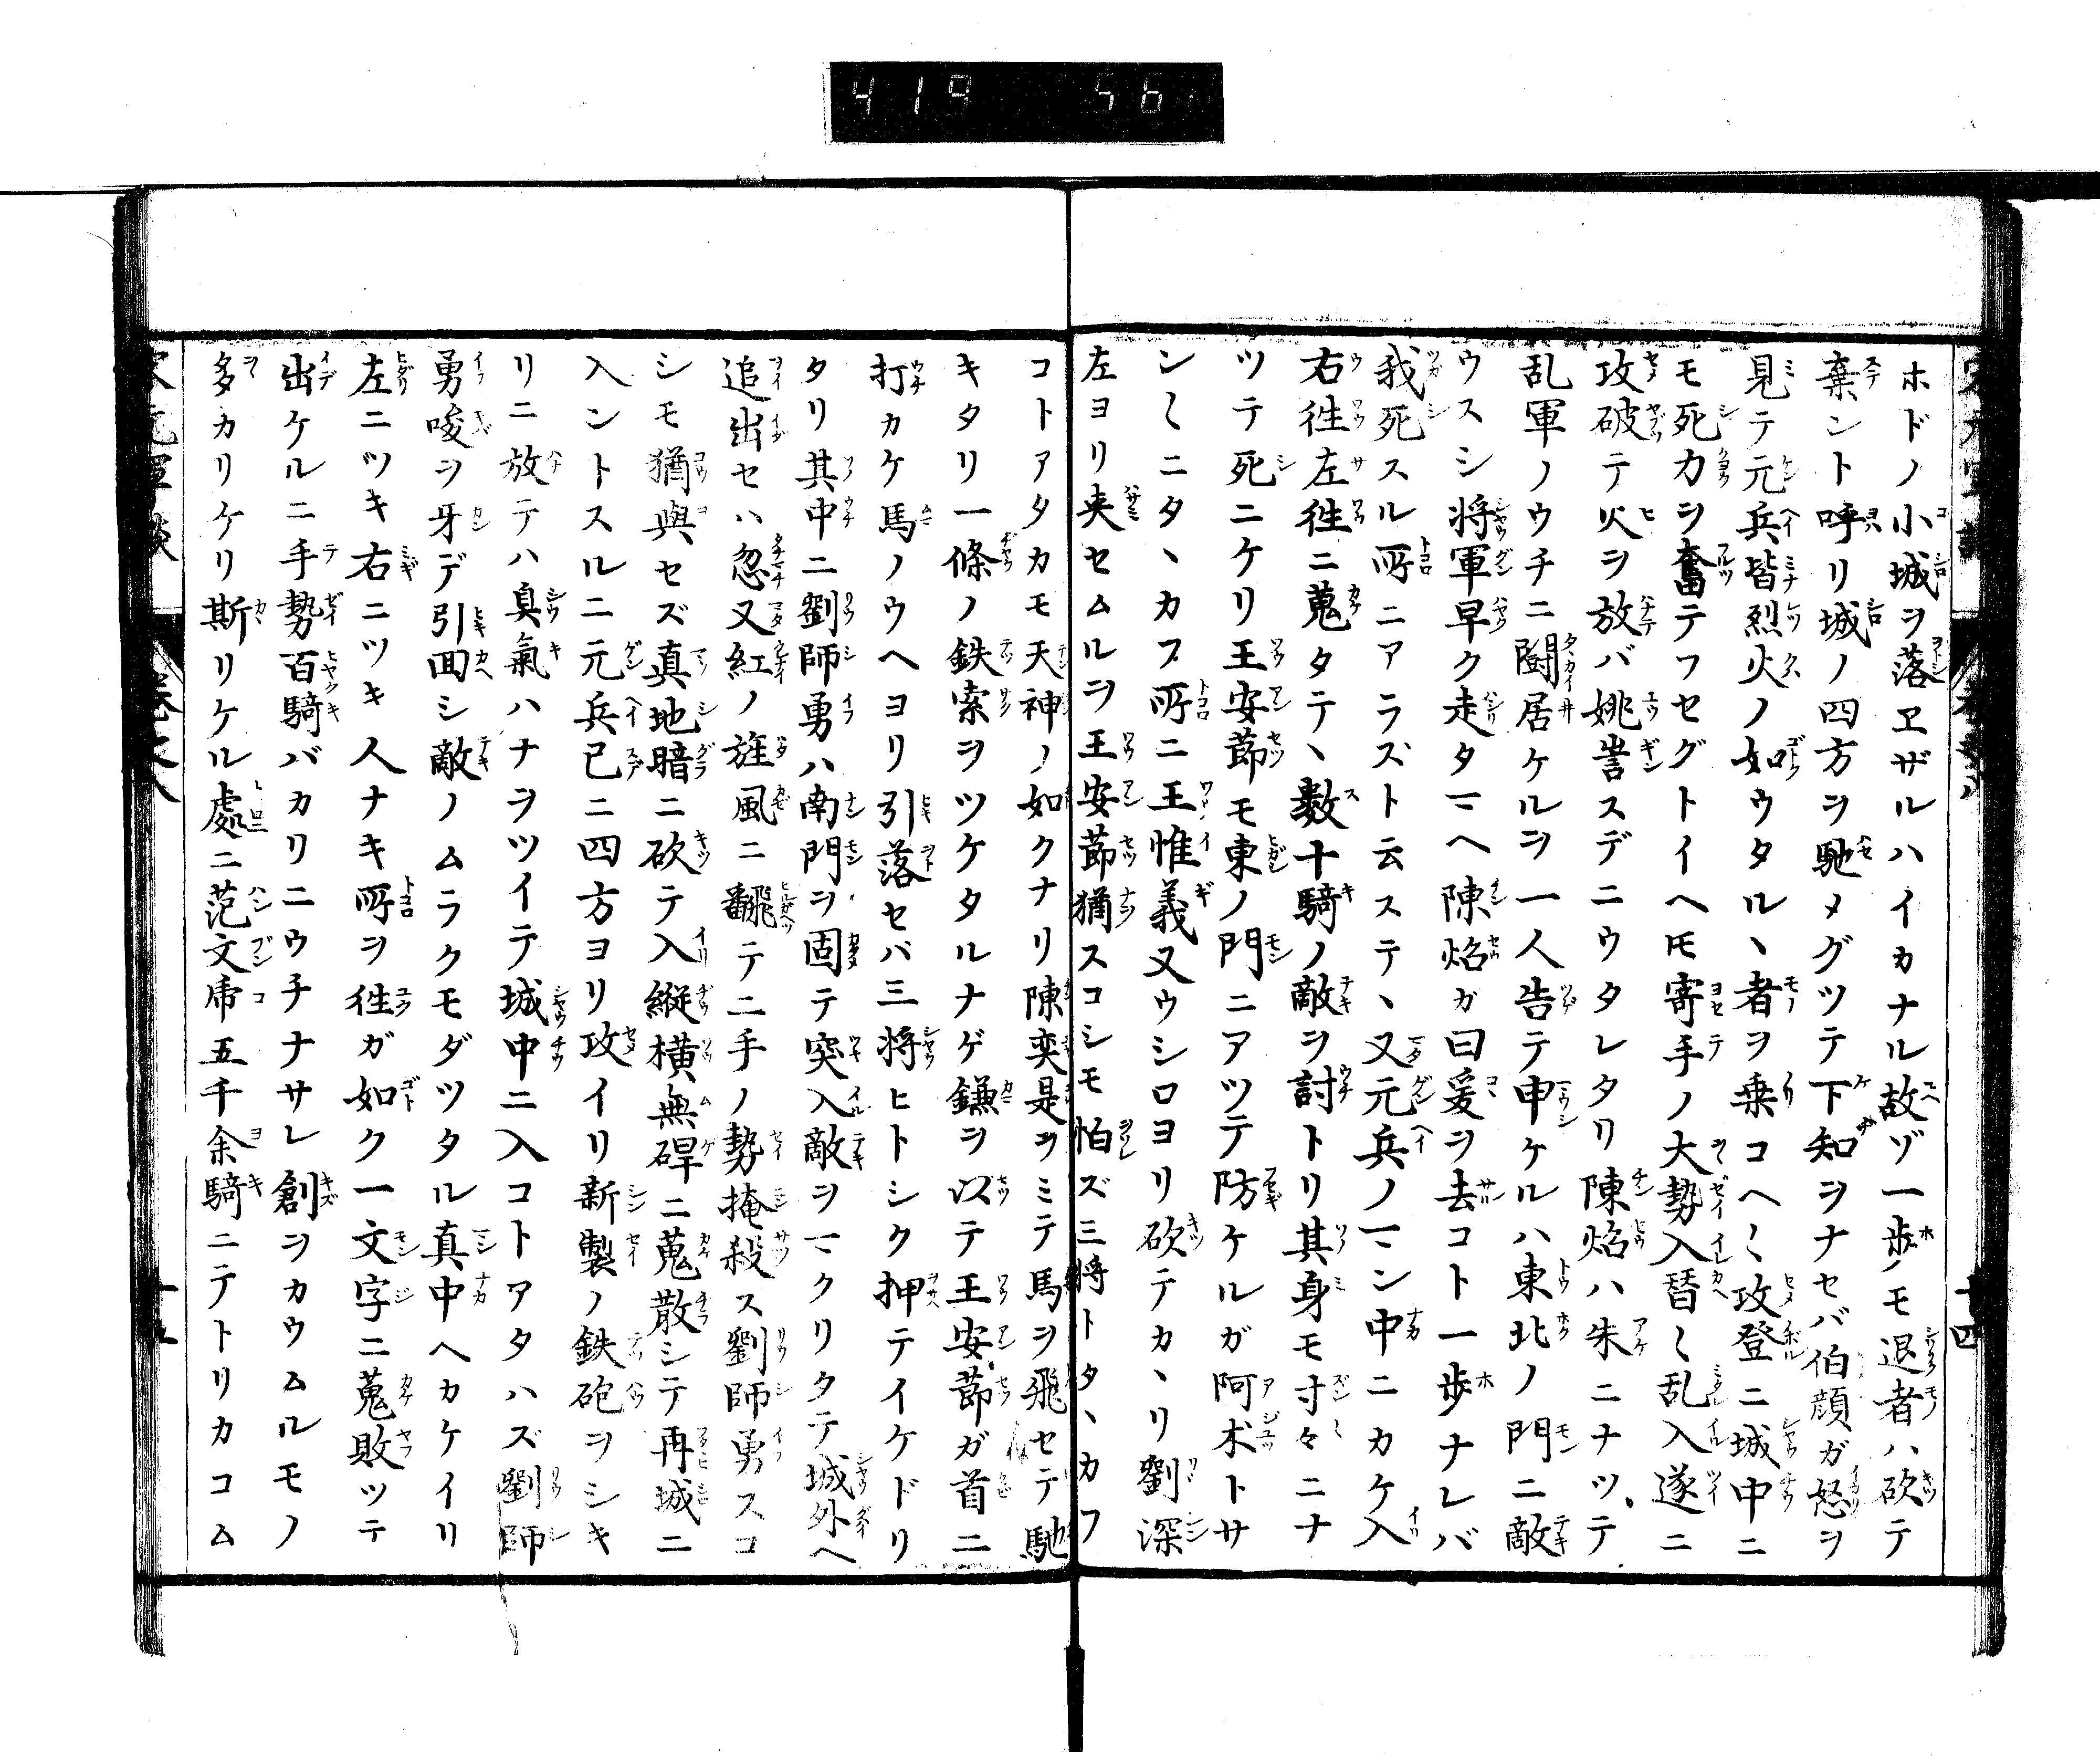 419 561
ホドノ小城ヲ落ヱザルハイカナル故ゾ一歩ノモ退者ハ砍テ
棄ント呼リ城ノ四方ヲ馳メグツテ下知ヲナセバ伯顔ガ怒ヲ
見テ元兵皆烈火ノ如ウタルヽ者ヲ乗コヘ〱攻登ニ城中ニ
モ死力ヲ奮テフセグトイヘ𪜈寄手ノ大勢入替〱乱入遂ニ
攻破テ火ヲ放バ姚訔スデニウタレタリ陳炤ハ朱ニナツテ
乱軍ノウチニ闘居ケルヲ一人告テ申ケルハ東北ノ門ニ敵
ウスシ将軍早ク走タマヘ陳炤ガ曰爰ヲ去コト一歩ナレバ
我死スル所ニアラズト云ステヽ又元兵ノマン中ニカケ入
右徃左徃ニ蒐タテヽ数十騎ノ敵ヲ討トリ其身モ寸々ニナ
ツテ死ニケリ王安節モ東ノ門ニアツテ防ケルガ阿朮トサ
ン〱ニタヽカフ所ニ王惟義又ウシロヨリ砍テカヽリ劉深
左ヨリ夾セムルヲ王安節猶スコシモ怕ズ三将トタヽカフ
コトアタカモ天神ノ如クナリ陳奕是ヲミテ馬ヲ飛セテ馳
キタリ一條ノ鉄索ヲツケタルナゲ鎌ヲ以テ王安節ガ首ニ
打カケ馬ノウヘヨリ引落セバ三将ヒトシク押テイケドリ
タリ其中ニ劉師勇ハ南門ヲ固テ突入敵ヲマクリタテ城外ヘ
追出セハ忽又紅ノ旌風ニ翻テ二手ノ勢掩殺ス劉師勇スコ
シモ猶與セズ真地暗ニ砍テ入縦横無碍ニ蒐散シテ再城ニ
入ントスルニ元兵已ニ四方ヨリ攻イリ新製ノ鉄砲ヲシキ
リニ放テハ臭氣ハナヲツイテ城中ニ入コトアタハズ劉師
勇唆ヲ牙デ引回シ敵ノムラクモダツタル真中ヘカケイリ
左ニツキ右ニツキ人ナキ所ヲ徃ガ如ク一文字ニ蒐敗ツテ
出ケルニ手勢百騎バカリニウチナサレ創ヲカウムルモノ
多カリケリ斯リケル處ニ范文虎五千余騎ニテトリカコム
巻之八
十五
十四